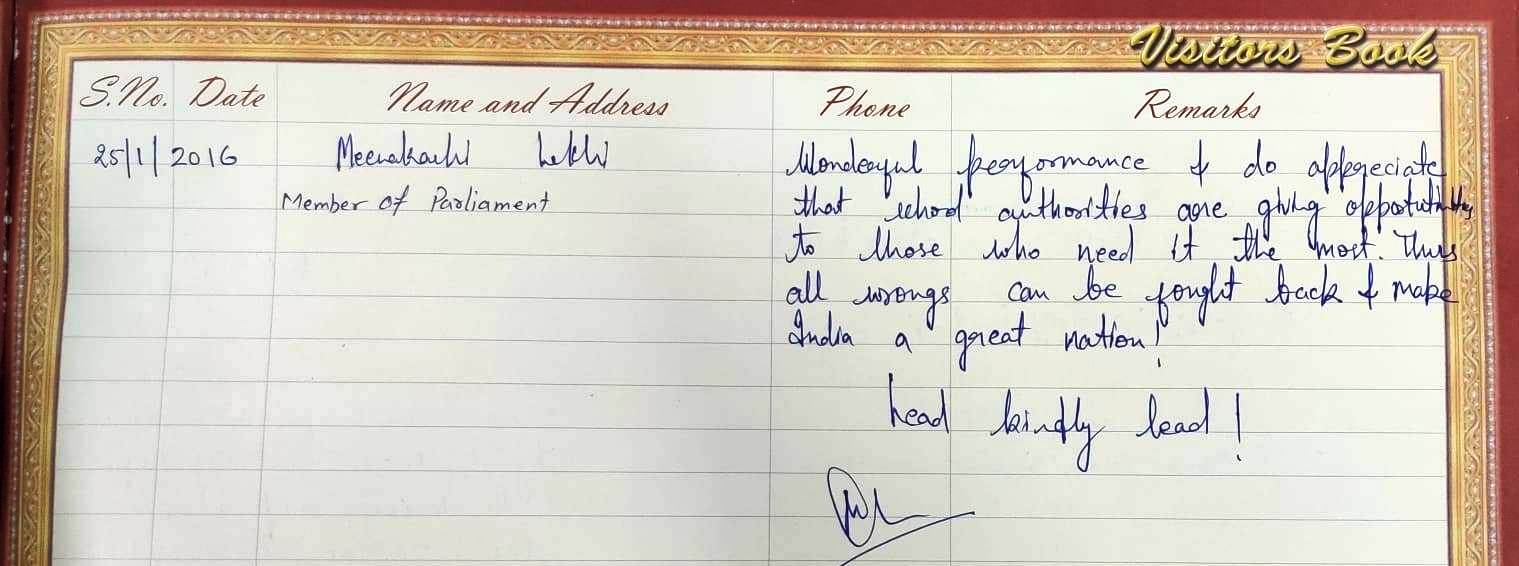 Visitors Book
S.No. Date Name and Address Phone Remarks
25/1/2016 Meenakashi Lekhi Wonderful performance & do appreciate
Member of Parliament that school authorities are giving oppotutinities
to those who need it the most. Thus
all wrongs can be fought back & make
India a great nation!
Lead kindly lead!